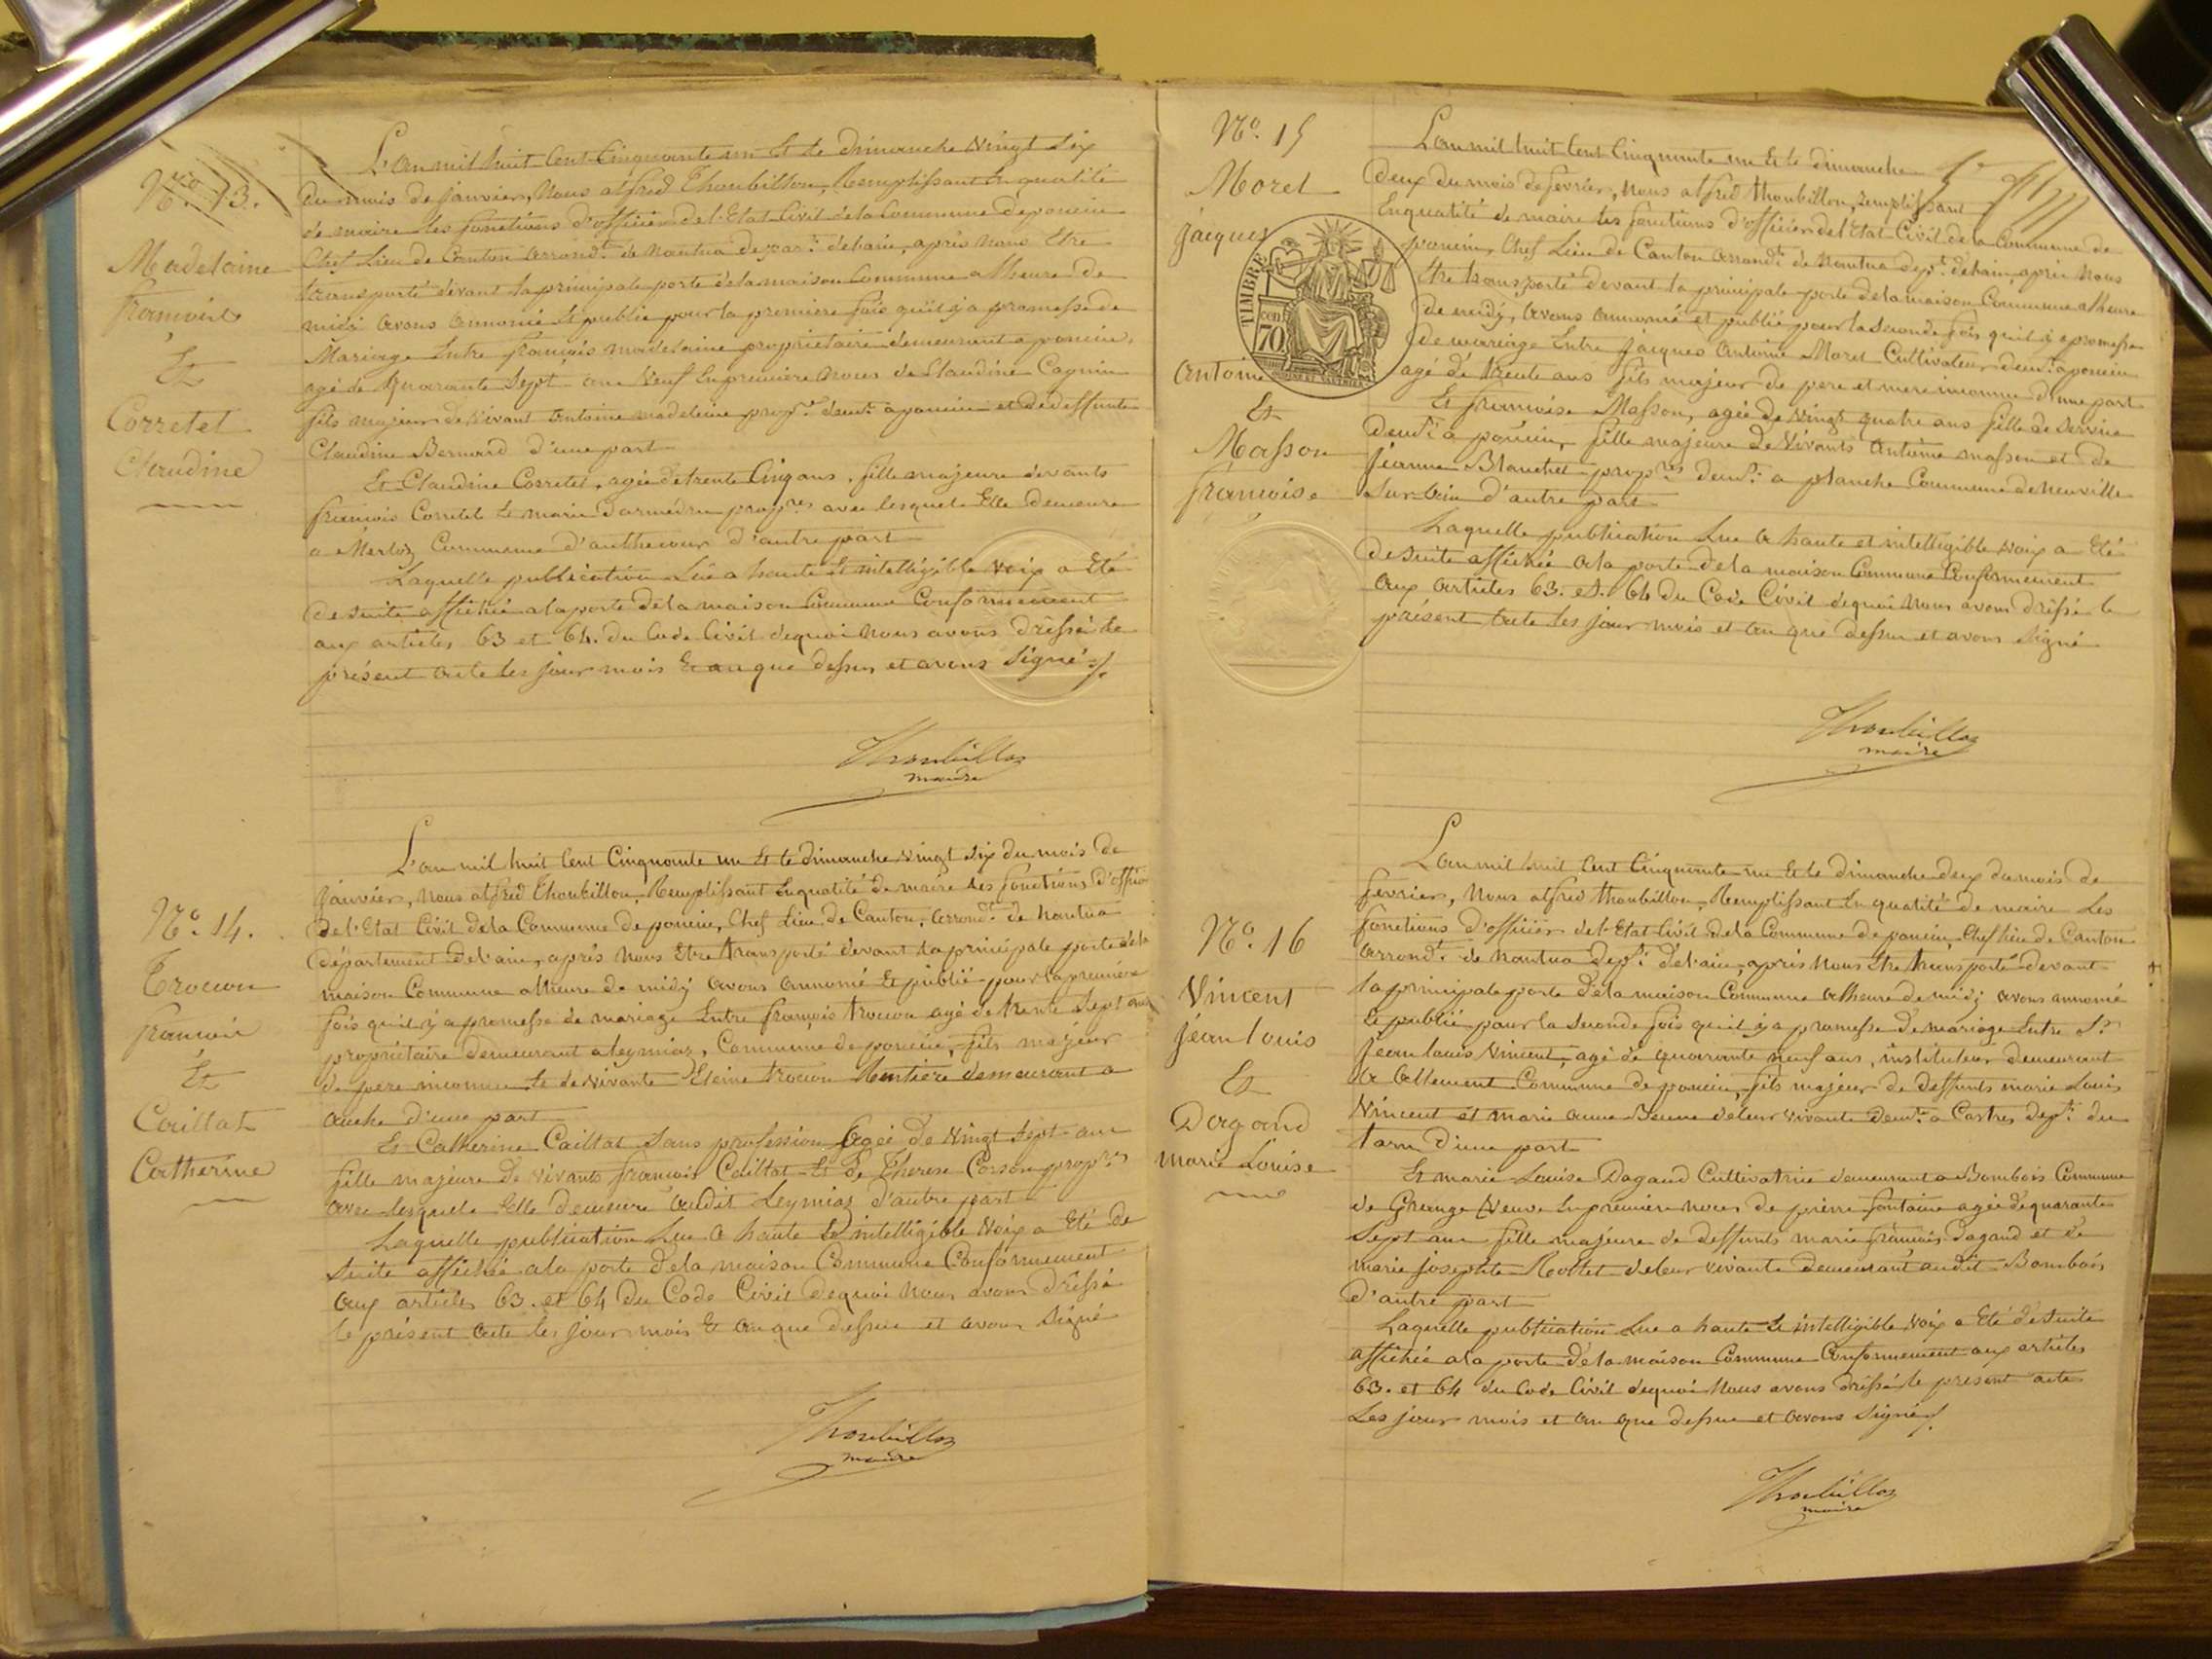 N.º 13.
Madelaine
françois
Et
Corretet
Claudine
L'an mil huit Cent Cinquante un Et le dimanche vingt Six
du mois de janvier, Nous alfred Thoubillon, Remplissant En qualité
de maire les fonctions d'officier de l'Etat Civil de la Commune de poncin
Chef Lieu de Canton arrond.t de Nantua depar.t de l'ain, après Nous Etre
transporté devant la principale porte de la maison Commune a l'heure de
midi avons annoncé Et publié pour la premiere fois qu'il y a promesse de
Mariage Entre françois madelaine propriétaire demeurant a poncin,
agé de quarante Sept ans Veuf En premiere Noces de Claudine Cagnin
fils majeur de vivant antoine madelaine prop.re dem.t a poncin et de deffunte
Claudine Bernard d'une part
Et Claudine Corretet, agée de trente Cinq ans, fille majeure de vivants
françois Corretet Et marie prop.res avec lesquels Elle demeure
a Merloz Commune d' d'autre part
Laquelle publication Lue a haute Et intelligible Voix a Eté
de suite affichée a la porte de la maison Commune Conformement
aux articles 63 et 64. du Code Civil de quoi Nous avons dressé le
présent acte les jour mois Et an que dessus et avons Signé ./.
Thoubillon
maire
N.º 14.
Trocon
françois
Et
Caillat
Catherine
L'an mil huit Cent Cinquante un Et le dimanche vingt six du mois de
janvier, Nous alfred Thoubillon, Remplissant En qualité de maire les fonctions d'officier
de l'Etat Civil de la Commune de poncin, Chef Lieu de Canton, arrond.t de Nantua
département de l'ain, après Nous Etre transporté devant la principale porte de la
maison Commune a l'heure de midi avons annoncé Et publié pour la premiere
fois qu'il y a promesse de mariage Entre françois trocon agé de trente Sept ans
propriétaire demeurant a leymiaz, Commune de poncin, fils majeur
de pere inconnu Et de vivante trocon Rentière demeurant a
d'une part
Et Catherine Caillat Sans profession Agée de Vingt Sept ans
fille majeure de vivants françois Caillat Et de Therese Corson prop.res
avec lesquels Elle demeure audit Leymiaz d'autre part
Laquelle publication Lue a haute Et intelligible Voix a Eté de
Suite affichée a la porte de la maison Commune Conformement
aux articles 63. et 64 du Code Civil de quoi Nous avons dressé
le présent acte les jour mois Et an que dessus et avons Signé
Thoubillon
maire
N.º 15
Morel
jacques
antoine
Et
Masson
françoise
TIMBRE
70
L'an mil huit Cent Cinquante un Et le dimanche
deux du mois de fevrier, Nous alfred thoubillon, remplissant
En qualité de maire les fonctions d'officier de l'Etat Civil de la Commune de
poncin, Chef Lieu de Canton arrond.t de Nantua dep.t de l'ain, après Nous
Etre transporté devant la principale porte de la maison Commune a l'heure
de midy, avons annoncé et publié pour la Seconde fois qu'il y a promesse
de mariage Entre jacques antoine Morel Cultivateur dem.t a poncin
agé de trente ans fils majeur de pere et mere inconnus d'une part
Et françoise Masson, agée de vingt quatre ans fille de Service
dem.t a poncin, fille majeure de Vivants antoine masson et de
jeanne Blanchet prop.res dem.t a planche Commune de neuville
Sur l'ain d'autre part
Laquelle publication Lue a haute et intelligible voix a Eté
de suite affichée a la porte de la maison Commune Conformement
aux articles 63. et. 64 du Code Civil de quoi Nous avons dressé le
présent acte les jour mois et an que dessus et avons Signé
Thoubillon
maire
N.º 16
Vincent
jean louis
Et
Dagand
marie Louise
L'an mil huit Cent Cinquante un Et le dimanche deux du mois de
fevrier, Nous alfred thoubillon, Remplissant En qualité de maire Les
fonctions d'officier de l'Etat Civil de la Commune de poncin, Chef lieu de Canton
arrond.t de Nantua Dep.t de l'ain, après Nous Etre transporté devant
la principale porte de la maison Commune a l'heure de midi avons annoncé
Et publié pour la Seconde fois qu'il y a promesse de mariage Entre S.r
jean louis Vincent, agé de quarante neuf ans, instituteur demeurant
a allement Commune de poncin, fils majeur de deffunts marie Louis
Vincent et marie anne de leur vivant dem.t a Castres dep.t du
tarn d'une part
Et marie Louise Dagand Cultivatrice demeurant a Bombois Commune
de Grange Veuve En premiere noces de pierre fontaine agée de quarante
Sept ans fille majeure de deffunts marie françois Dagand et de
marie josephte de leur vivant demeurant audit Bombois
d'autre part
Laquelle publication Lue a haute Et intelligible voix a Eté de Suite
affichée a la porte de la maison Commune Conformement aux articles
63. et 64 du Code Civil de quoi Nous avons dressé le présent acte
Les jour mois et an que dessus et avons Signé ./.
Thoubillon
maire